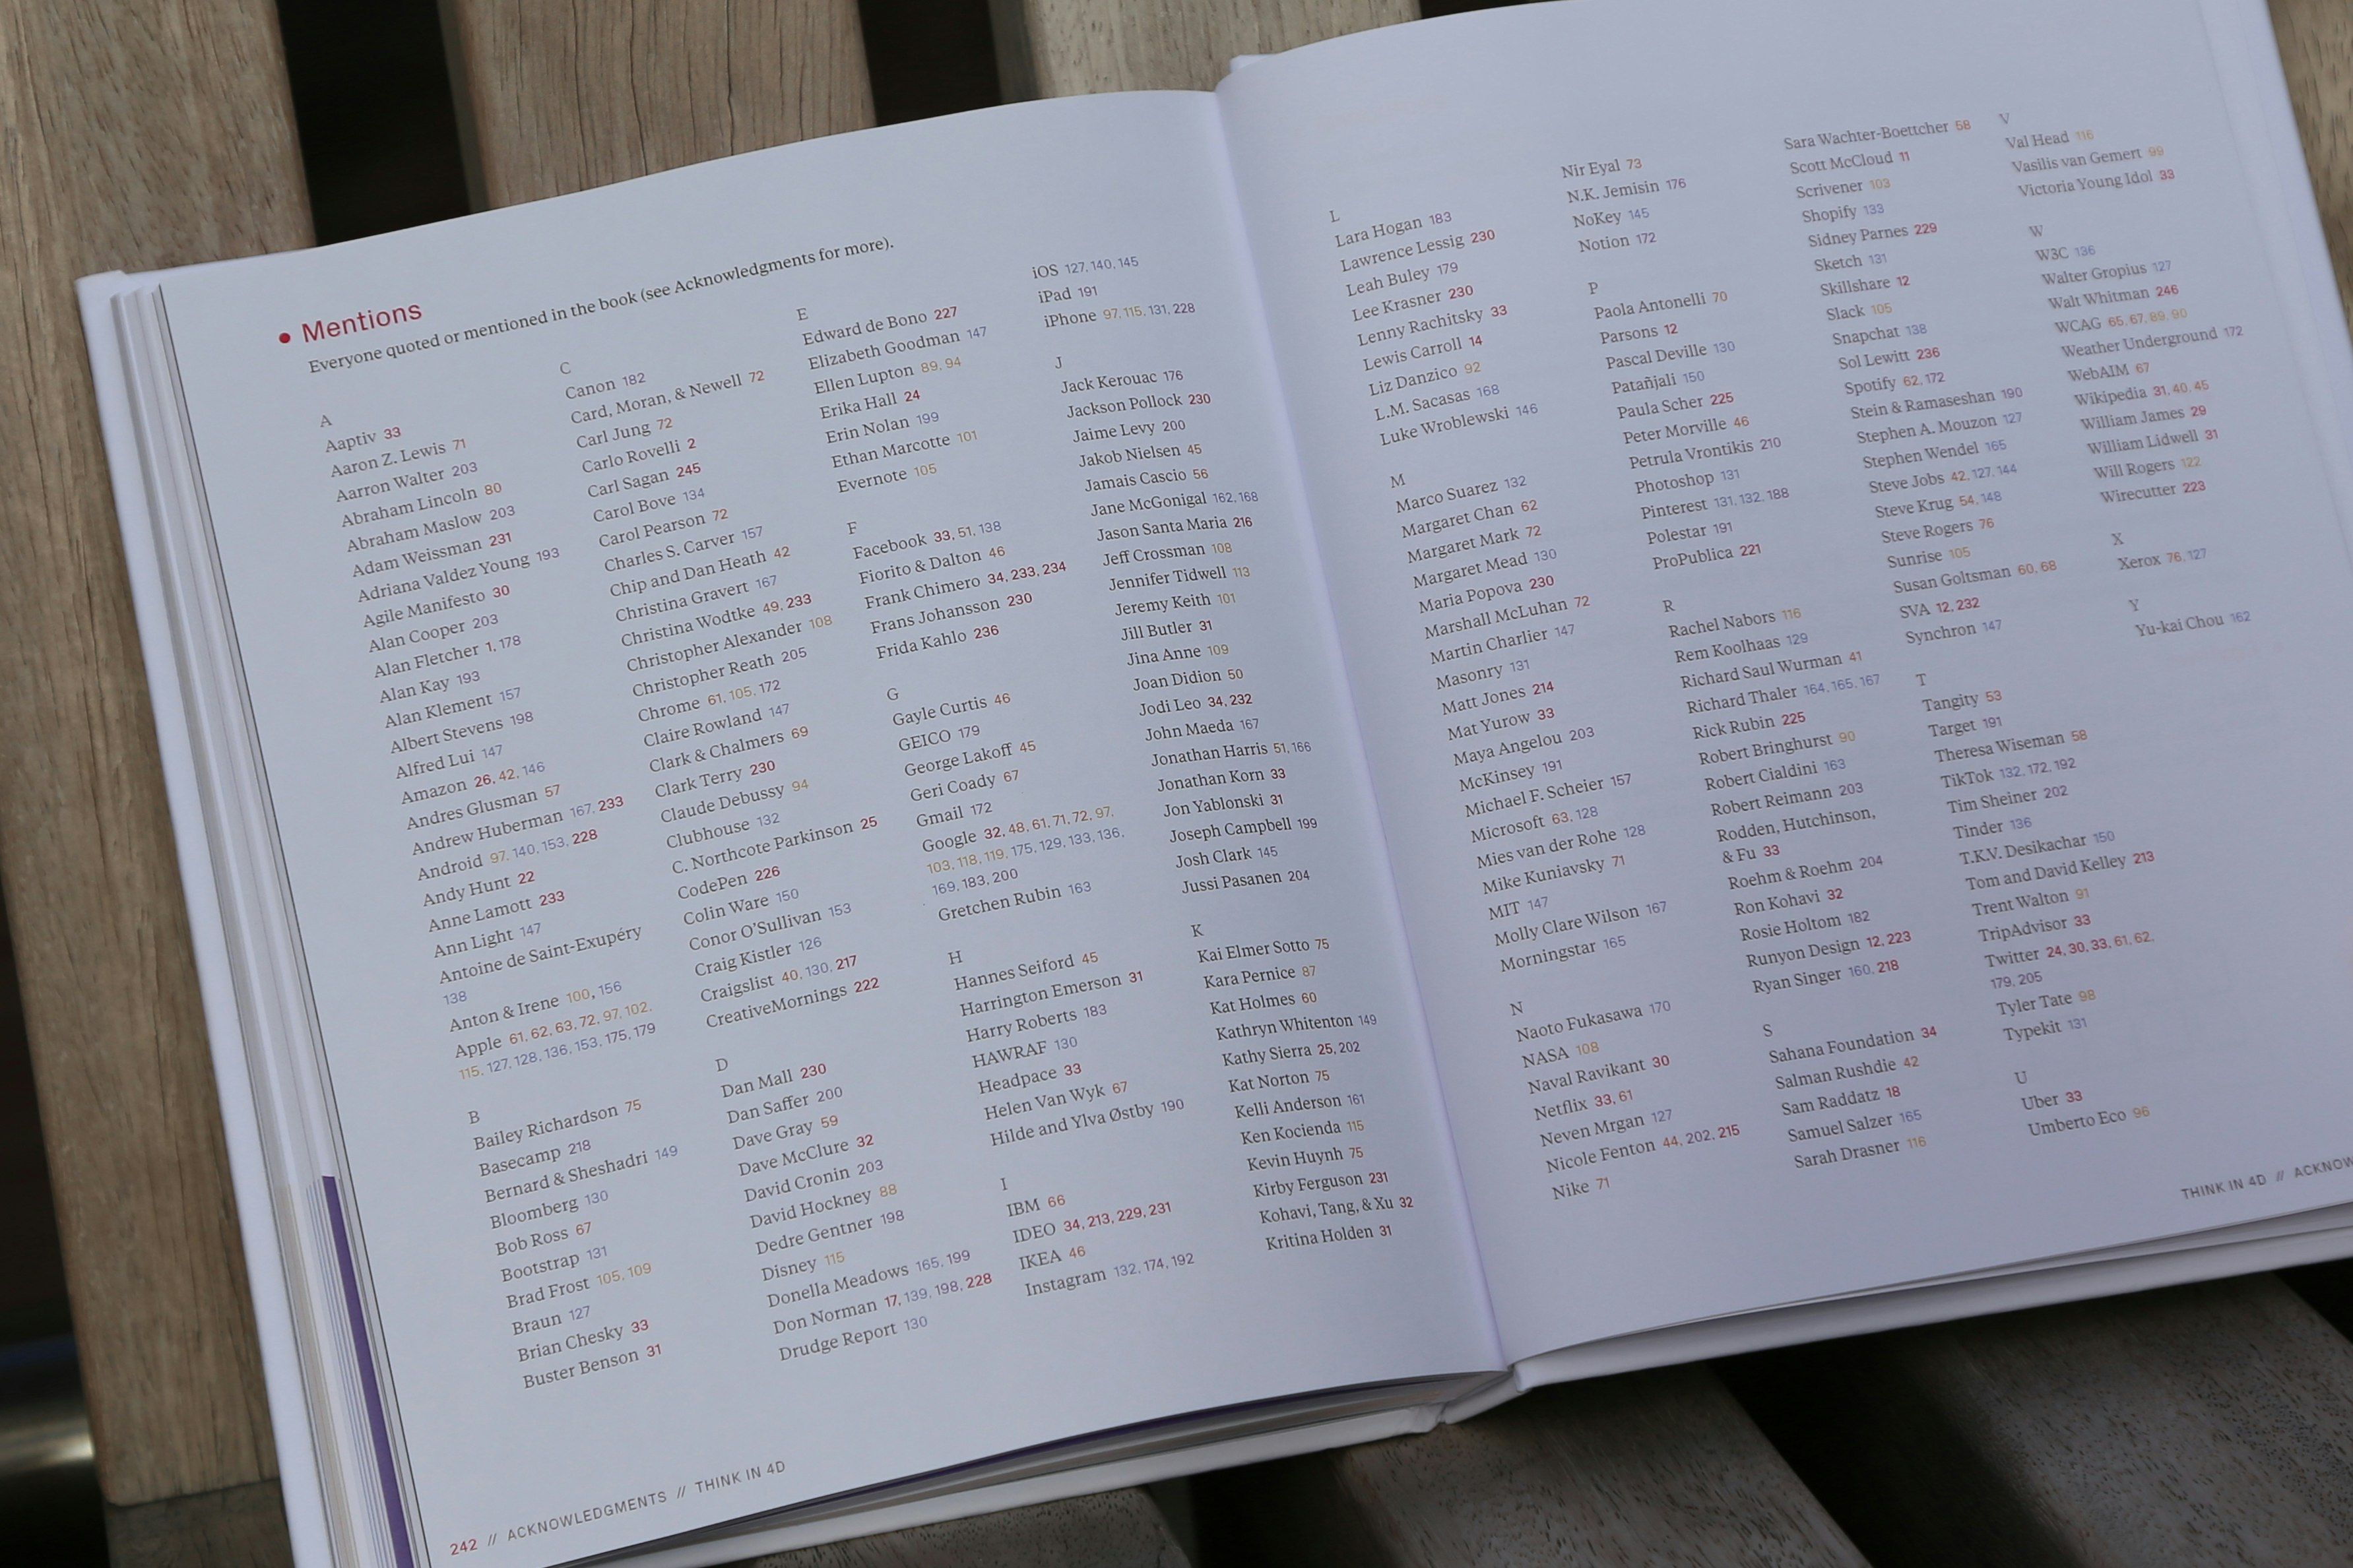 Mentions
Everyone quoted or mentioned in the book (see Acknowledgments for more).
A
Aaptiv 33
Aaron Z. Lewis 71
Aarron Walter 203
Abraham Lincoln 80
Abraham Maslow 203
Adam Weissman 231
Adriana Valdez Young 193
Agile Manifesto 30
Alan Cooper 203
Alan Fletcher 1, 178
Alan Kay 193
Alan Klement 157
Albert Stevens 198
Alfred Lui 147
Amazon 26, 42, 146
Andres Glusman 57
Andrew Huberman 167, 233
Android 97, 140, 153, 228
Andy Hunt 22
Anne Lamott 233
Ann Light 147
Antoine de Saint-Exupéry
138
Anton & Irene 100, 156
Apple 61, 62, 63, 72, 97, 102,
115, 127, 128, 136, 153, 175, 179
B
Bailey Richardson 75
Basecamp 218
Bernard & Sheshadri 149
Bloomberg 130
Bob Ross 67
Bootstrap 131
Brad Frost 105, 109
Braun 127
Brian Chesky 33
Buster Benson 31
C
Canon 182
Card, Moran, & Newell 72
Carl Jung 72
Carlo Rovelli 2
Carl Sagan 245
Carol Bove 134
Carol Pearson 72
Charles S. Carver 157
Chip and Dan Heath 42
Christina Gravert 167
Christina Wodtke 49, 233
Christopher Alexander 108
Christopher Reath 205
Chrome 61, 105, 172
Claire Rowland 147
Clark & Chalmers 69
Clark Terry 230
Claude Debussy 94
Clubhouse 132
C. Northcote Parkinson 25
CodePen 226
Colin Ware 150
Conor O'Sullivan 153
Craig Kistler 126
Craigslist 40, 130, 217
CreativeMornings 222
D
Dan Mall 230
Dan Saffer 200
Dave Gray 59
Dave McClure 32
David Cronin 203
David Hockney 88
Dedre Gentner 198
Disney 115
Donella Meadows 165, 199
Don Norman 17, 139, 198, 228
Drudge Report 130
E
Edward de Bono 227
Elizabeth Goodman 147
Ellen Lupton 89, 94
Erika Hall 24
Erin Nolan 199
Ethan Marcotte 101
Evernote 105
F
Facebook 33, 51, 138
Fiorito & Dalton 46
Frank Chimero 34, 233, 234
Frans Johansson 230
Frida Kahlo 236
G
Gayle Curtis 46
GEICO 179
George Lakoff 45
Geri Coady 67
Gmail 172
Google 32, 48, 61, 71, 72, 97,
103, 118, 119, 175, 129, 133, 136,
169, 183, 200
Gretchen Rubin 163
H
Hannes Seiford 45
Harrington Emerson 31
Harry Roberts 183
HAWRAF 130
Headpace 33
Helen Van Wyk 67
Hilde and Ylva Østby 190
I
IBM 66
IDEO 34, 213, 229, 231
IKEA 46
Instagram 132, 174, 192
iOS 127, 140, 145
iPad 191
iPhone 97, 115, 131, 228
J
Jack Kerouac 176
Jackson Pollock 230
Jaime Levy 200
Jakob Nielsen 45
Jamais Cascio 56
Jane McGonigal 162, 168
Jason Santa Maria 216
Jeff Crossman 108
Jennifer Tidwell 113
Jeremy Keith 101
Jill Butler 31
Jina Anne 109
Joan Didion 50
Jodi Leo 34, 232
John Maeda 167
Jonathan Harris 51, 166
Jonathan Korn 33
Jon Yablonski 31
Joseph Campbell 199
Josh Clark 145
Jussi Pasanen 204
K
Kai Elmer Sotto 75
Kara Pernice 87
Kat Holmes 60
Kathryn Whitenton 149
Kathy Sierra 25, 202
Kat Norton 75
Kelli Anderson 161
Ken Kocienda 115
Kevin Huynh 75
Kirby Ferguson 231
Kohavi, Tang, & Xu 32
Kritina Holden 31
242 // ACKNOWLEDGMENTS // THINK IN 4D
L
Lara Hogan 183
Lawrence Lessig 230
Leah Buley 179
Lee Krasner 230
Lenny Rachitsky 33
Lewis Carroll 14
Liz Danzico 92
L.M. Sacasas 168
Luke Wroblewski 146
M
Marco Suarez 132
Margaret Chan 62
Margaret Mark 72
Margaret Mead 130
Maria Popova 230
Marshall McLuhan 72
Martin Charlier 147
Masonry 131
Matt Jones 214
Mat Yurow 33
Maya Angelou 203
McKinsey 191
Michael F. Scheier 157
Microsoft 63, 128
Mies van der Rohe 128
Mike Kuniavsky 71
MIT 147
Molly Clare Wilson 167
Morningstar 165
N
Naoto Fukasawa 170
NASA 108
Naval Ravikant 30
Netflix 33, 61
Neven Mrgan 127
Nicole Fenton 44, 202, 215
Nike 71
Nir Eyal 73
N.K. Jemisin 176
NoKey 145
Notion 172
P
Paola Antonelli 70
Parsons 12
Pascal Deville 130
Patañjali 150
Paula Scher 225
Peter Morville 46
Petrula Vrontikis 210
Photoshop 131
Pinterest 131, 132, 188
Polestar 191
ProPublica 221
R
Rachel Nabors 116
Rem Koolhaas 129
Richard Saul Wurman 41
Richard Thaler 164, 165, 167
Rick Rubin 225
Robert Bringhurst 90
Robert Cialdini 163
Robert Reimann 203
Rodden, Hutchinson,
& Fu 33
Roehm & Roehm 204
Ron Kohavi 32
Rosie Holtom 182
Runyon Design 12, 223
Ryan Singer 160, 218
S
Sahana Foundation 34
Salman Rushdie 42
Sam Raddatz 18
Samuel Salzer 165
Sarah Drasner 116
Sara Wachter-Boettcher 58
Scott McCloud 11
Scrivener 103
Shopify 133
Sidney Parnes 229
Sketch 131
Skillshare 12
Slack 105
Snapchat 138
Sol Lewitt 236
Spotify 62, 172
Stein & Ramaseshan 190
Stephen A. Mouzon 127
Stephen Wendel 165
Steve Jobs 42, 127, 144
Steve Krug 54, 148
Steve Rogers 76
Sunrise 105
Susan Goltsman 60, 68
SVA 12, 232
Synchron 147
T
Tangity 53
Target 191
Theresa Wiseman 58
TikTok 132, 172, 192
Tim Sheiner 202
Tinder 136
T.K.V. Desikachar 150
Tom and David Kelley 213
Trent Walton 91
TripAdvisor 33
Twitter 24, 30, 33, 61, 62,
179, 205
Tyler Tate 98
Typekit 131
U
Uber 33
Umberto Eco 96
V
Val Head 116
Vasilis van Gemert 99
Victoria Young Idol 33
W
W3C 136
Walter Gropius 127
Walt Whitman 246
WCAG 65, 67, 89, 90
Weather Underground 172
WebAIM 67
Wikipedia 31, 40, 45
William James 29
William Lidwell 31
Will Rogers 122
Wirecutter 223
X
Xerox 76, 127
Y
Yu-kai Chou 162
THINK IN 4D // ACKNOW